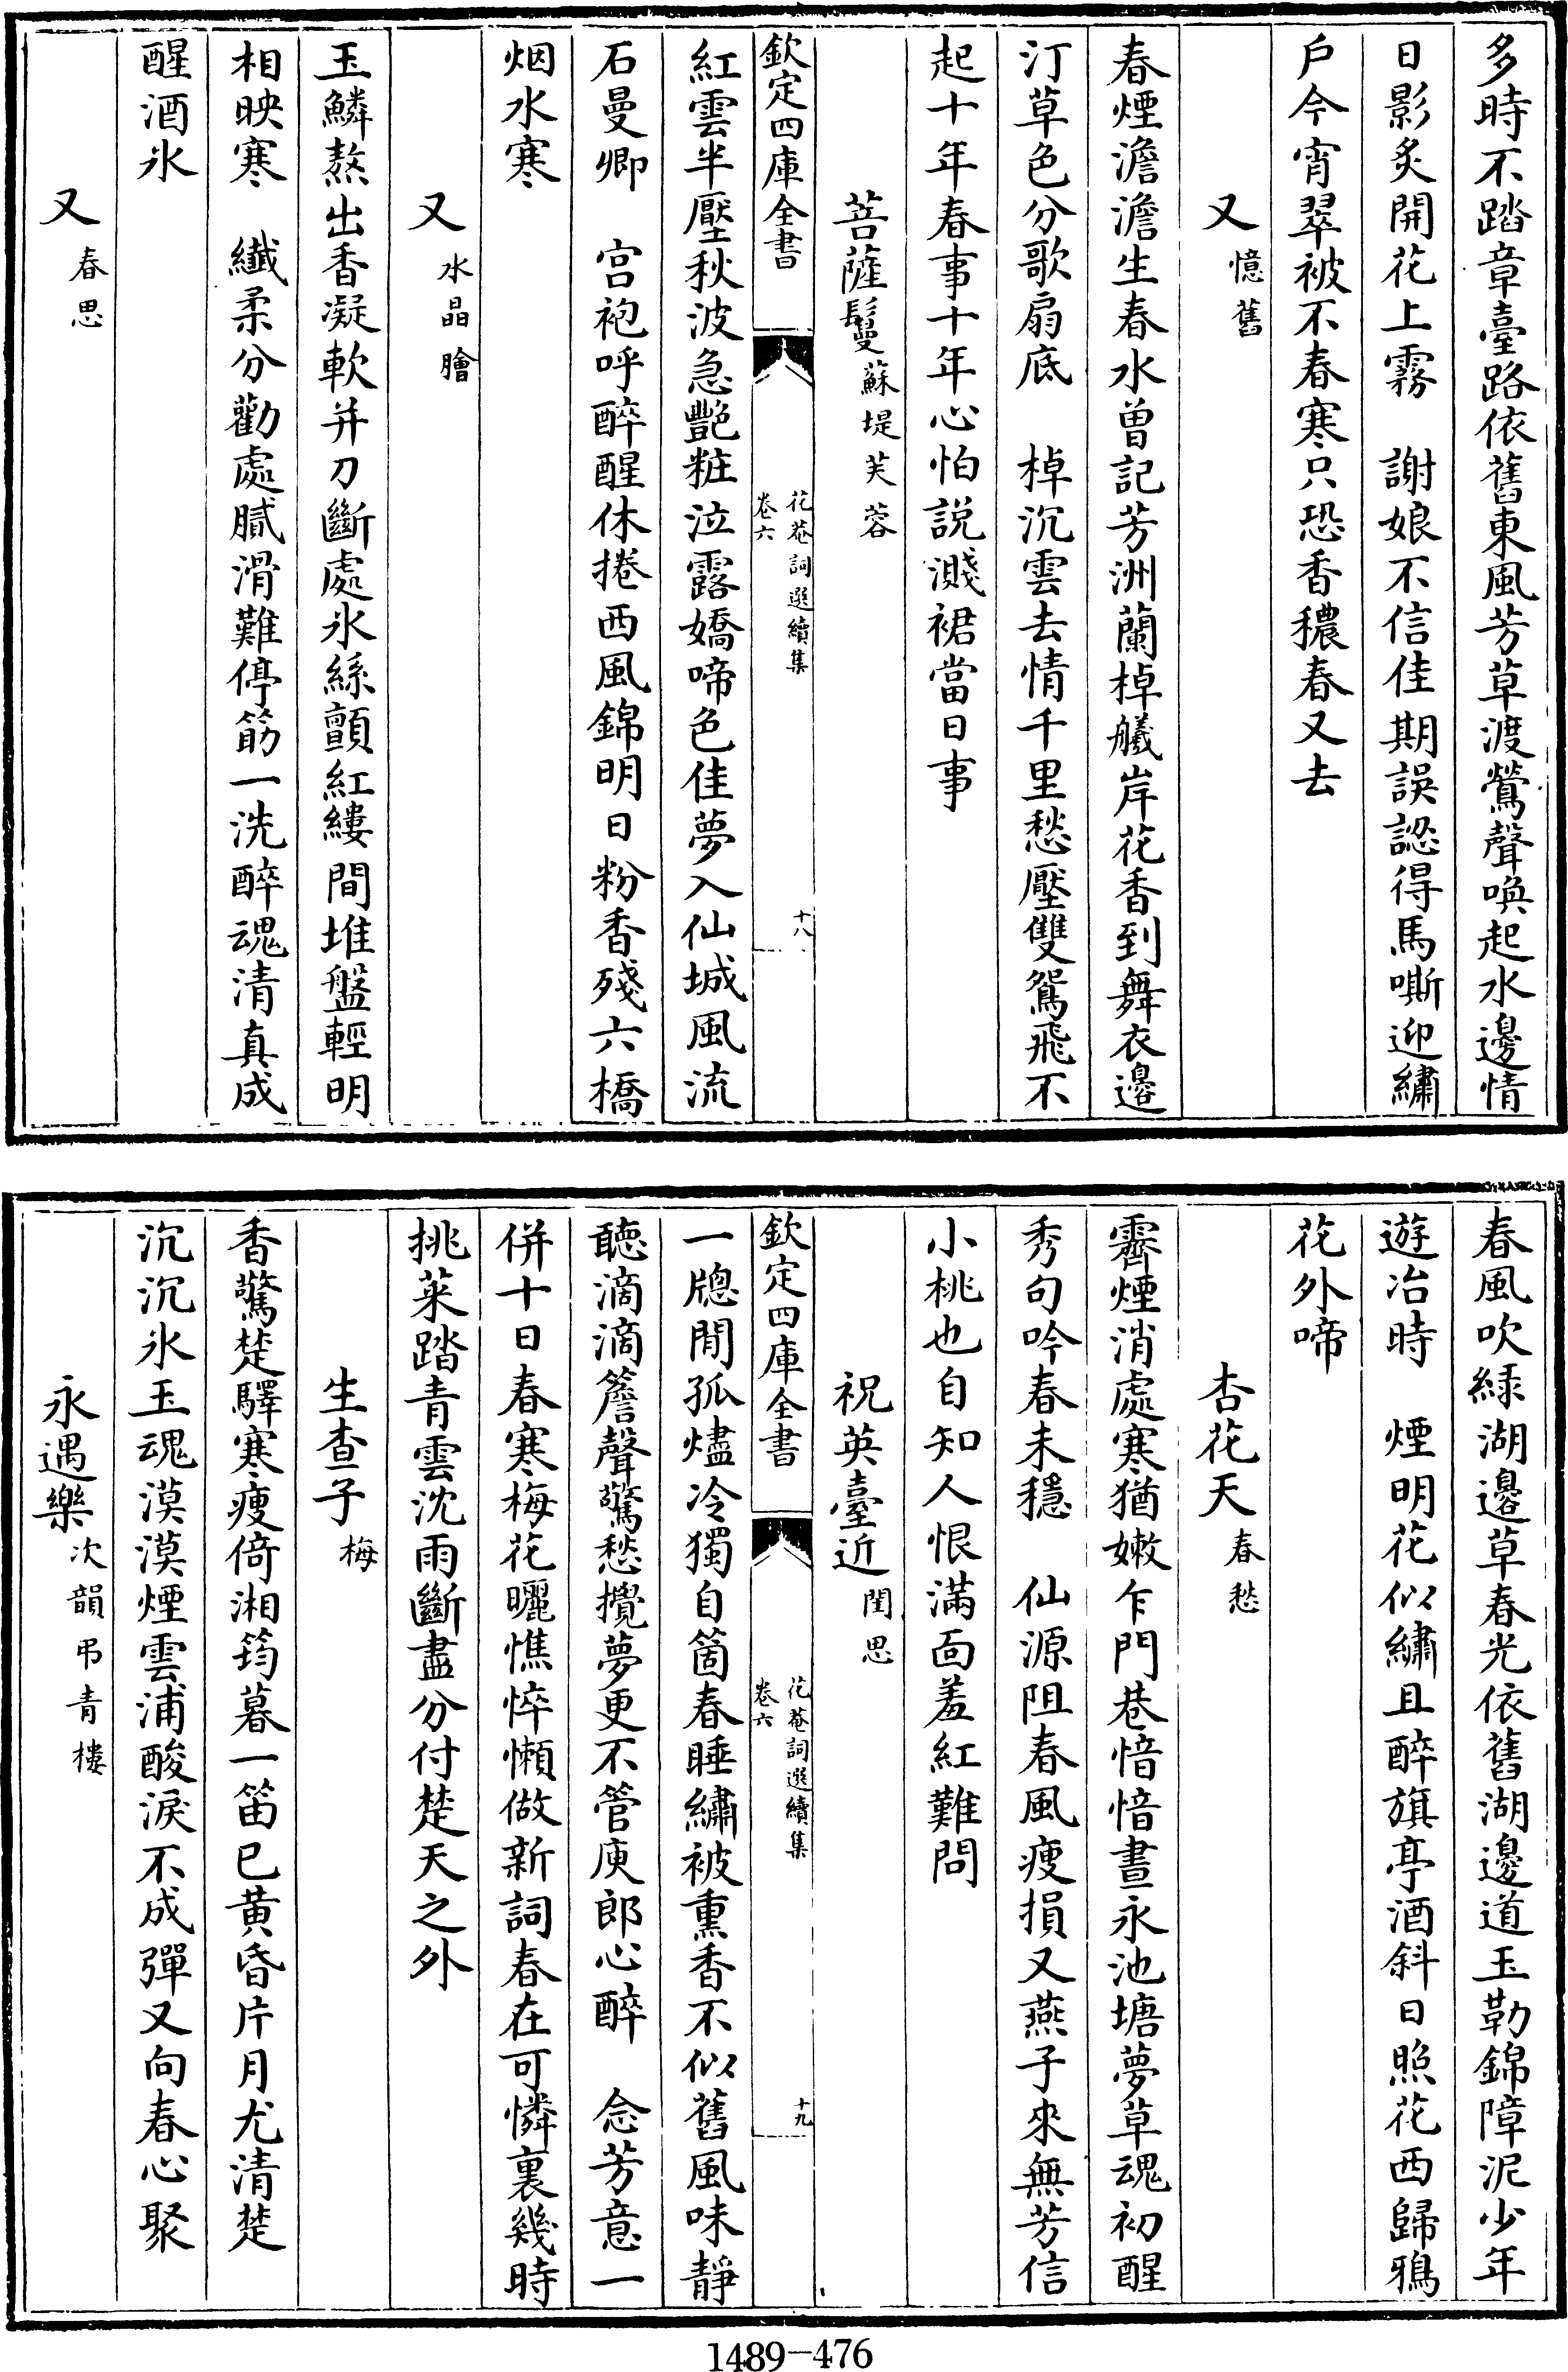 多時不踏章臺路依舊東風芳草渡鶯聲喚起水邊情
日影炙開花上霧　謝娘不信佳期誤認得馬嘶迎繡
戶今宵翠被不春寒只恐香穠春又去
又憶舊
春煙澹澹生春水曾記芳洲蘭棹艤岸花香到舞衣邊
汀草色分歌扇底　棹沉雲去情千里愁壓雙鴛飛不
起十年春事十年心怕說濺裙當日事
菩薩鬘蘇堤芙蓉
欽定四庫全書
花菴詞選續集
卷六
十八
紅雲半壓秋波急艷粧泣露嬌啼色佳夢入仙城風流
石曼卿　宮袍呼醉醒休捲西風錦明日粉香殘六橋
烟水寒
又水晶膾
玉鱗熬出香凝軟并刀斷處氷絲顫紅縷間堆盤輕明
相映寒　纖柔分勸處膩滑難停筯一洗醉魂清真成
醒酒氷
又春思
春風吹綠湖邊草春光依舊湖邊道玉勒錦障泥少年
遊冶時　煙明花似繡且醉旗亭酒斜日照花西歸鴉
花外啼
杏花天春愁
霽煙消處寒猶嫩乍門巷愔愔晝永池塘夢草魂初醒
秀句吟春未穩　仙源阻春風瘦損又燕子來無芳信
小桃也自知人恨滿面羞紅難問
祝英臺近閨思
欽定四庫全書
花菴詞選續集
卷六
十九
一牕閒孤燼冷獨自箇春睡繡被熏香不似舊風味靜
聽滴滴簷聲驚愁攪夢更不管庾郎心醉　念芳意一
併十日春寒梅花曬憔悴懶做新詞春在可憐裏幾時
挑菜踏青雲沈雨斷盡分付楚天之外
生查子梅
香驚楚驛寒瘦倚湘筠暮一笛已黃昏片月尤清楚
沉沉氷玉魂漠漠煙雲浦酸淚不成彈又向春心聚
永遇樂次韻弔青樓
1489-476